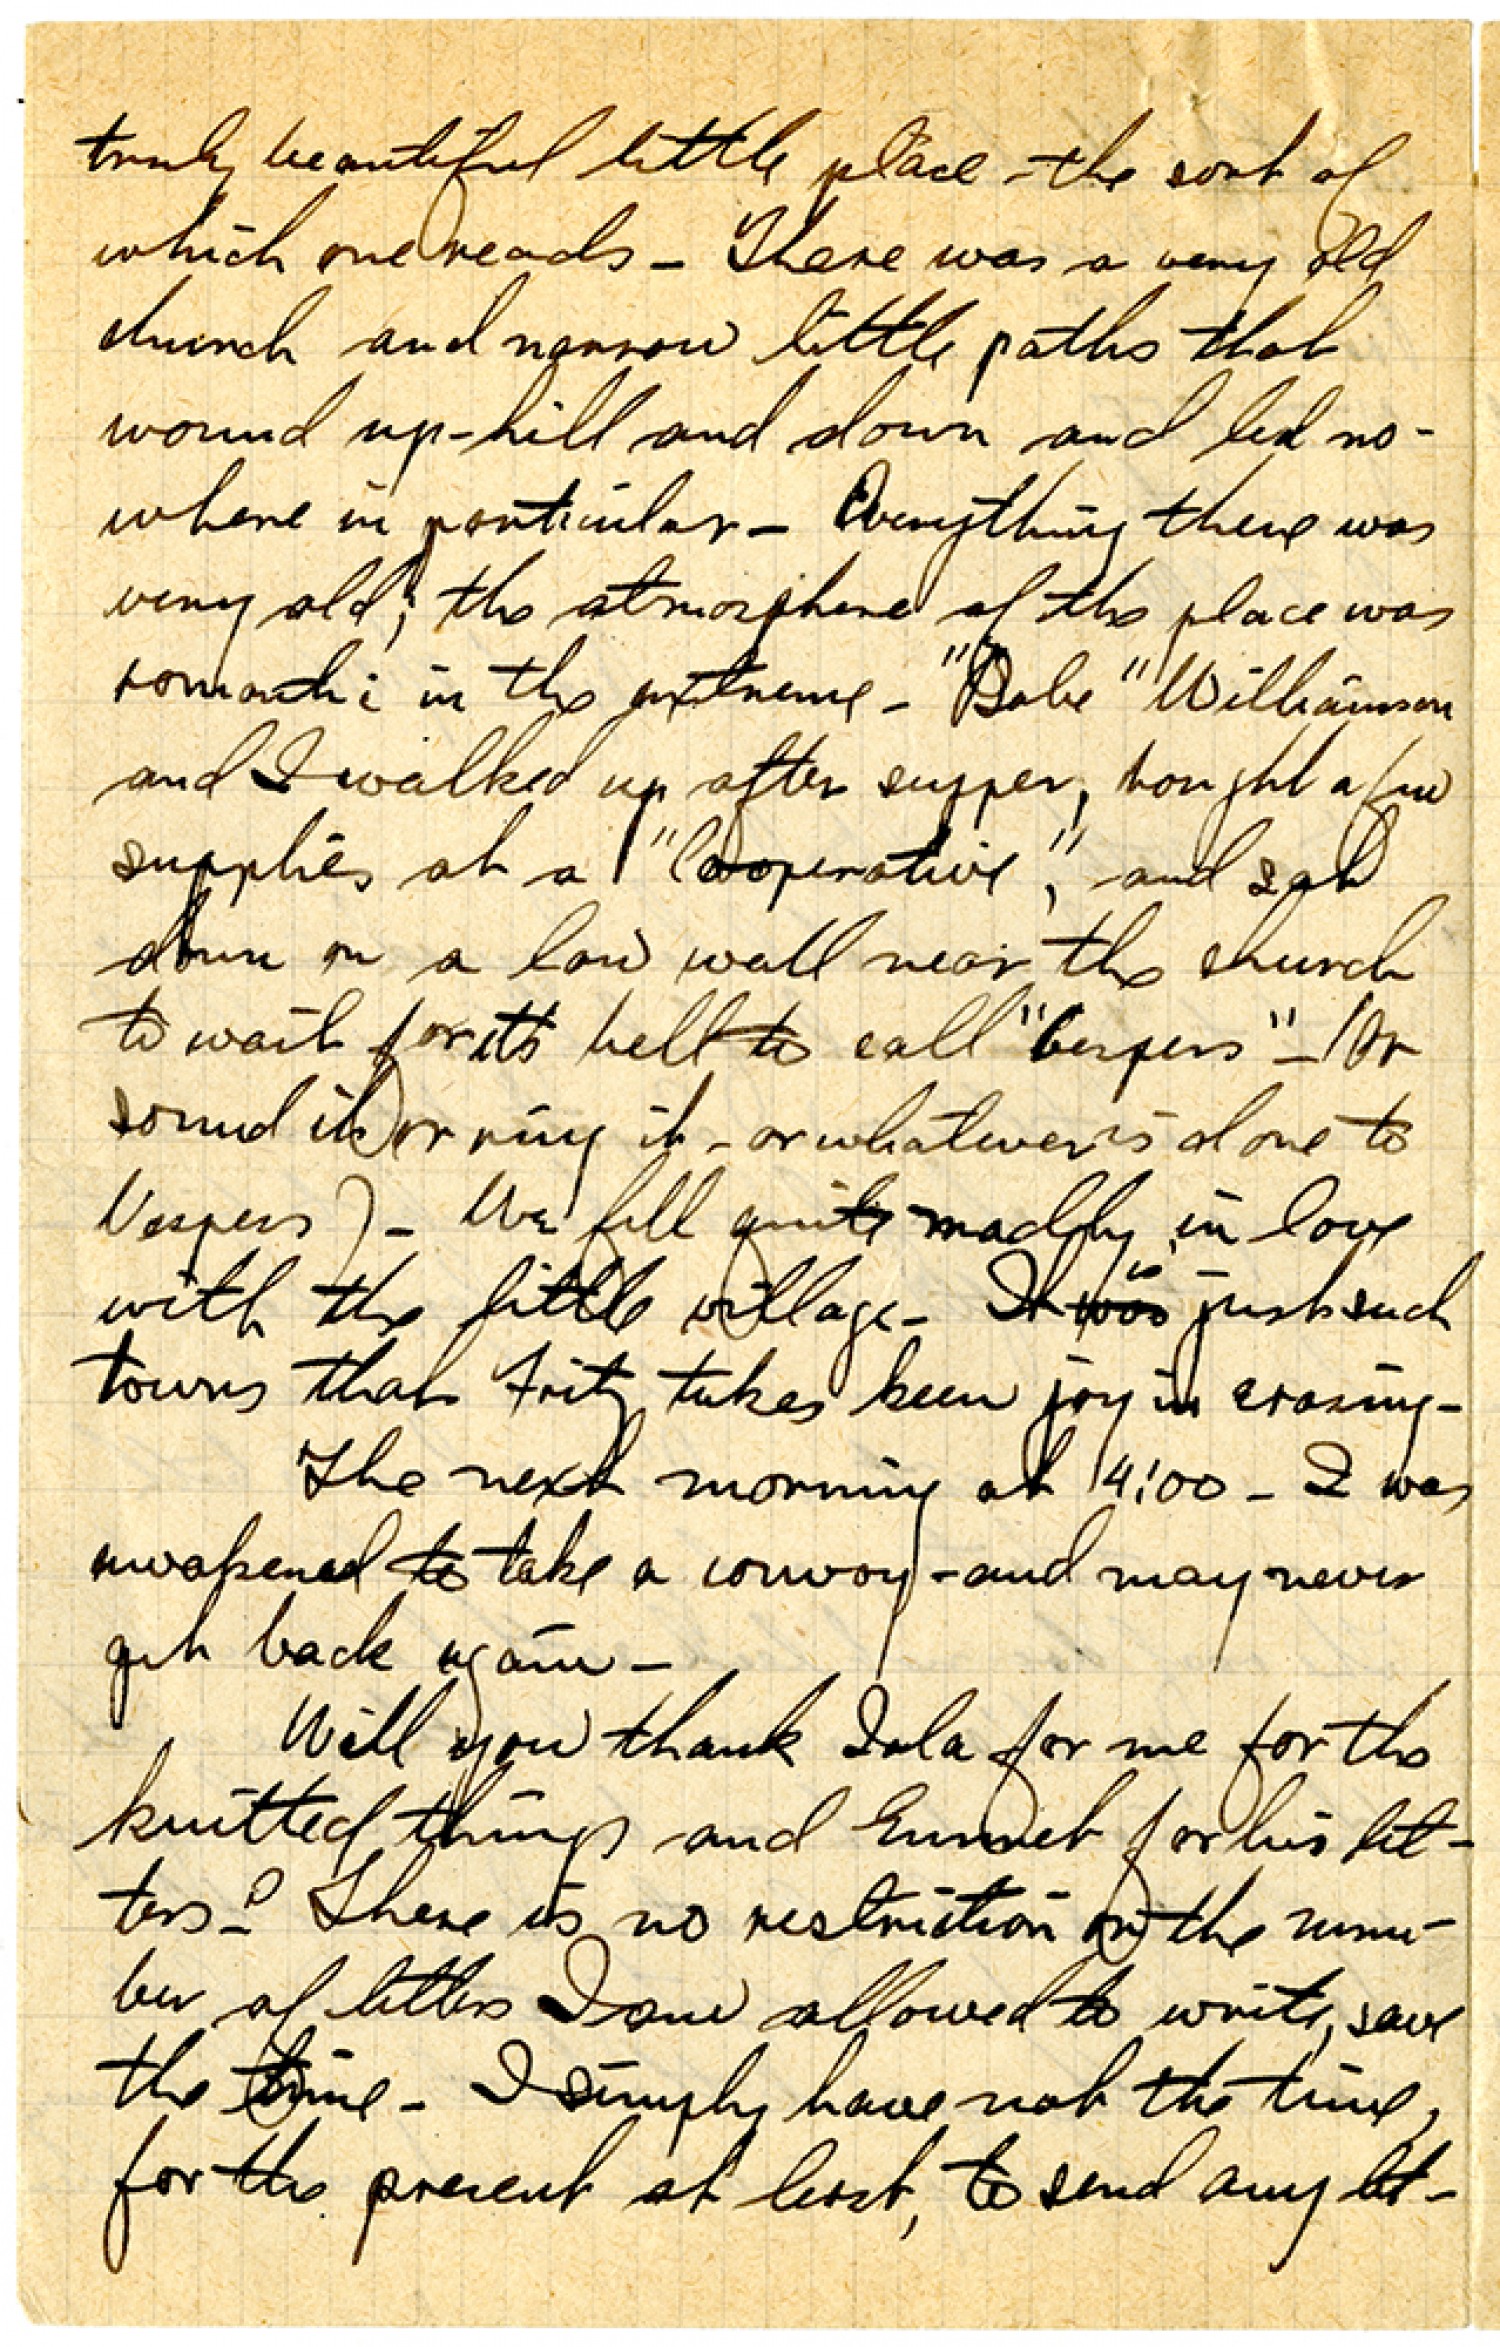 truly beautiful little place - the sort of
which one reads - There was a very old
church and narrow little paths that
wound up-hill and down and led no-
where in particular - Everything there was
very old; the atmosphere of the place was
romantic in the extreme - "Babe" Williamson
and I walked up after supper, bought a few
supplies at a "Cooperative", and sat
down on a low wall near the church
to wait for its bell to call "Vespers" - (Or
sound it or ring it - or whatever is done to
Vespers) - We fell quite madly in love
with the little village - It is was just such
towns that Fritz takes keen joy in erasing -
The next morning at 4:00 - I was
awakened to take a convoy - and may never
get back again -
Will you thank Iola for me for the
knitted things and Emmet for his let-
ters -? There is no restriction on the num-
ber of letters I am allowed to write, save
the time - I simply have not the time,
for the present at least, to send any let-